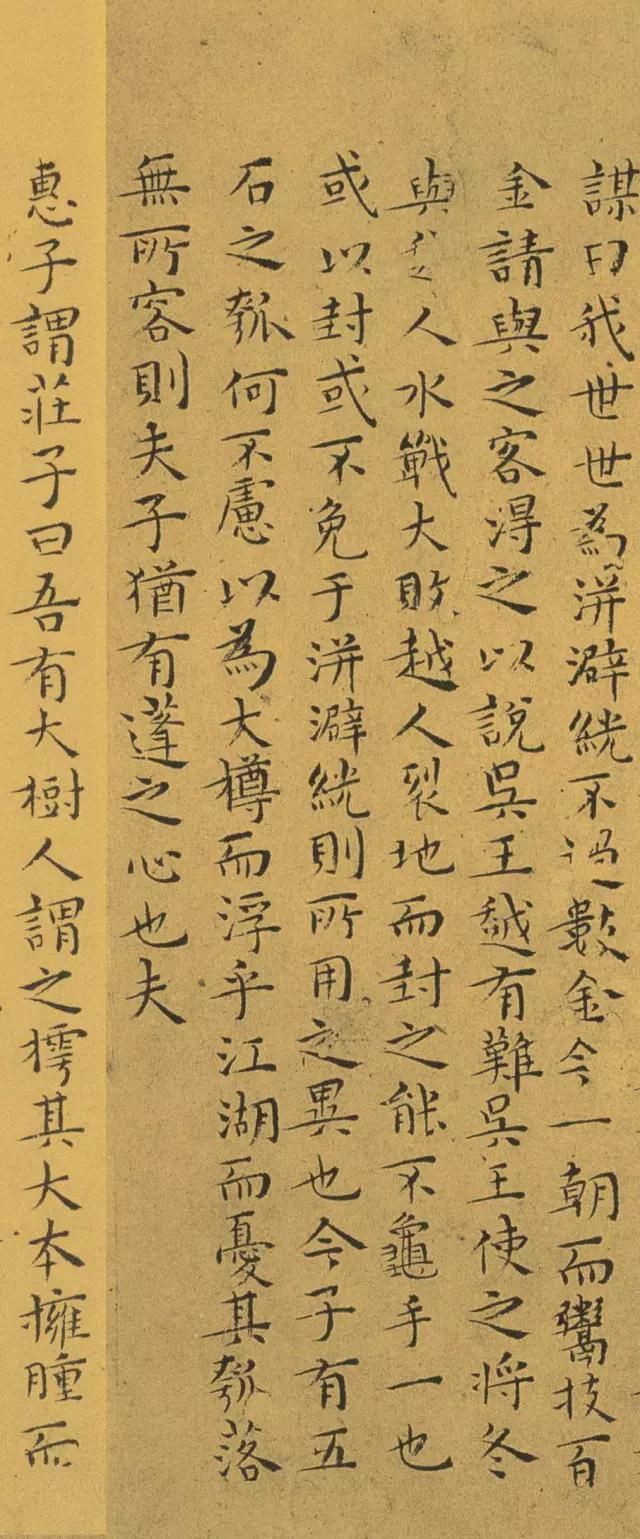 謀曰我世世為洴澼絖不過數金今一朝而鬻技百
金請與之客得之以說吳王越有難吳王使之將冬
與越人水戰大敗越人裂地而封之能不龜手一也
或以封或不免于洴澼絖則所用之異也今子有五
石之瓠何不慮以為大樽而浮乎江湖而憂其瓠落
無所容則夫子猶有蓬之心也夫
惠子謂莊子曰吾有大樹人謂之樗其大本擁腫而